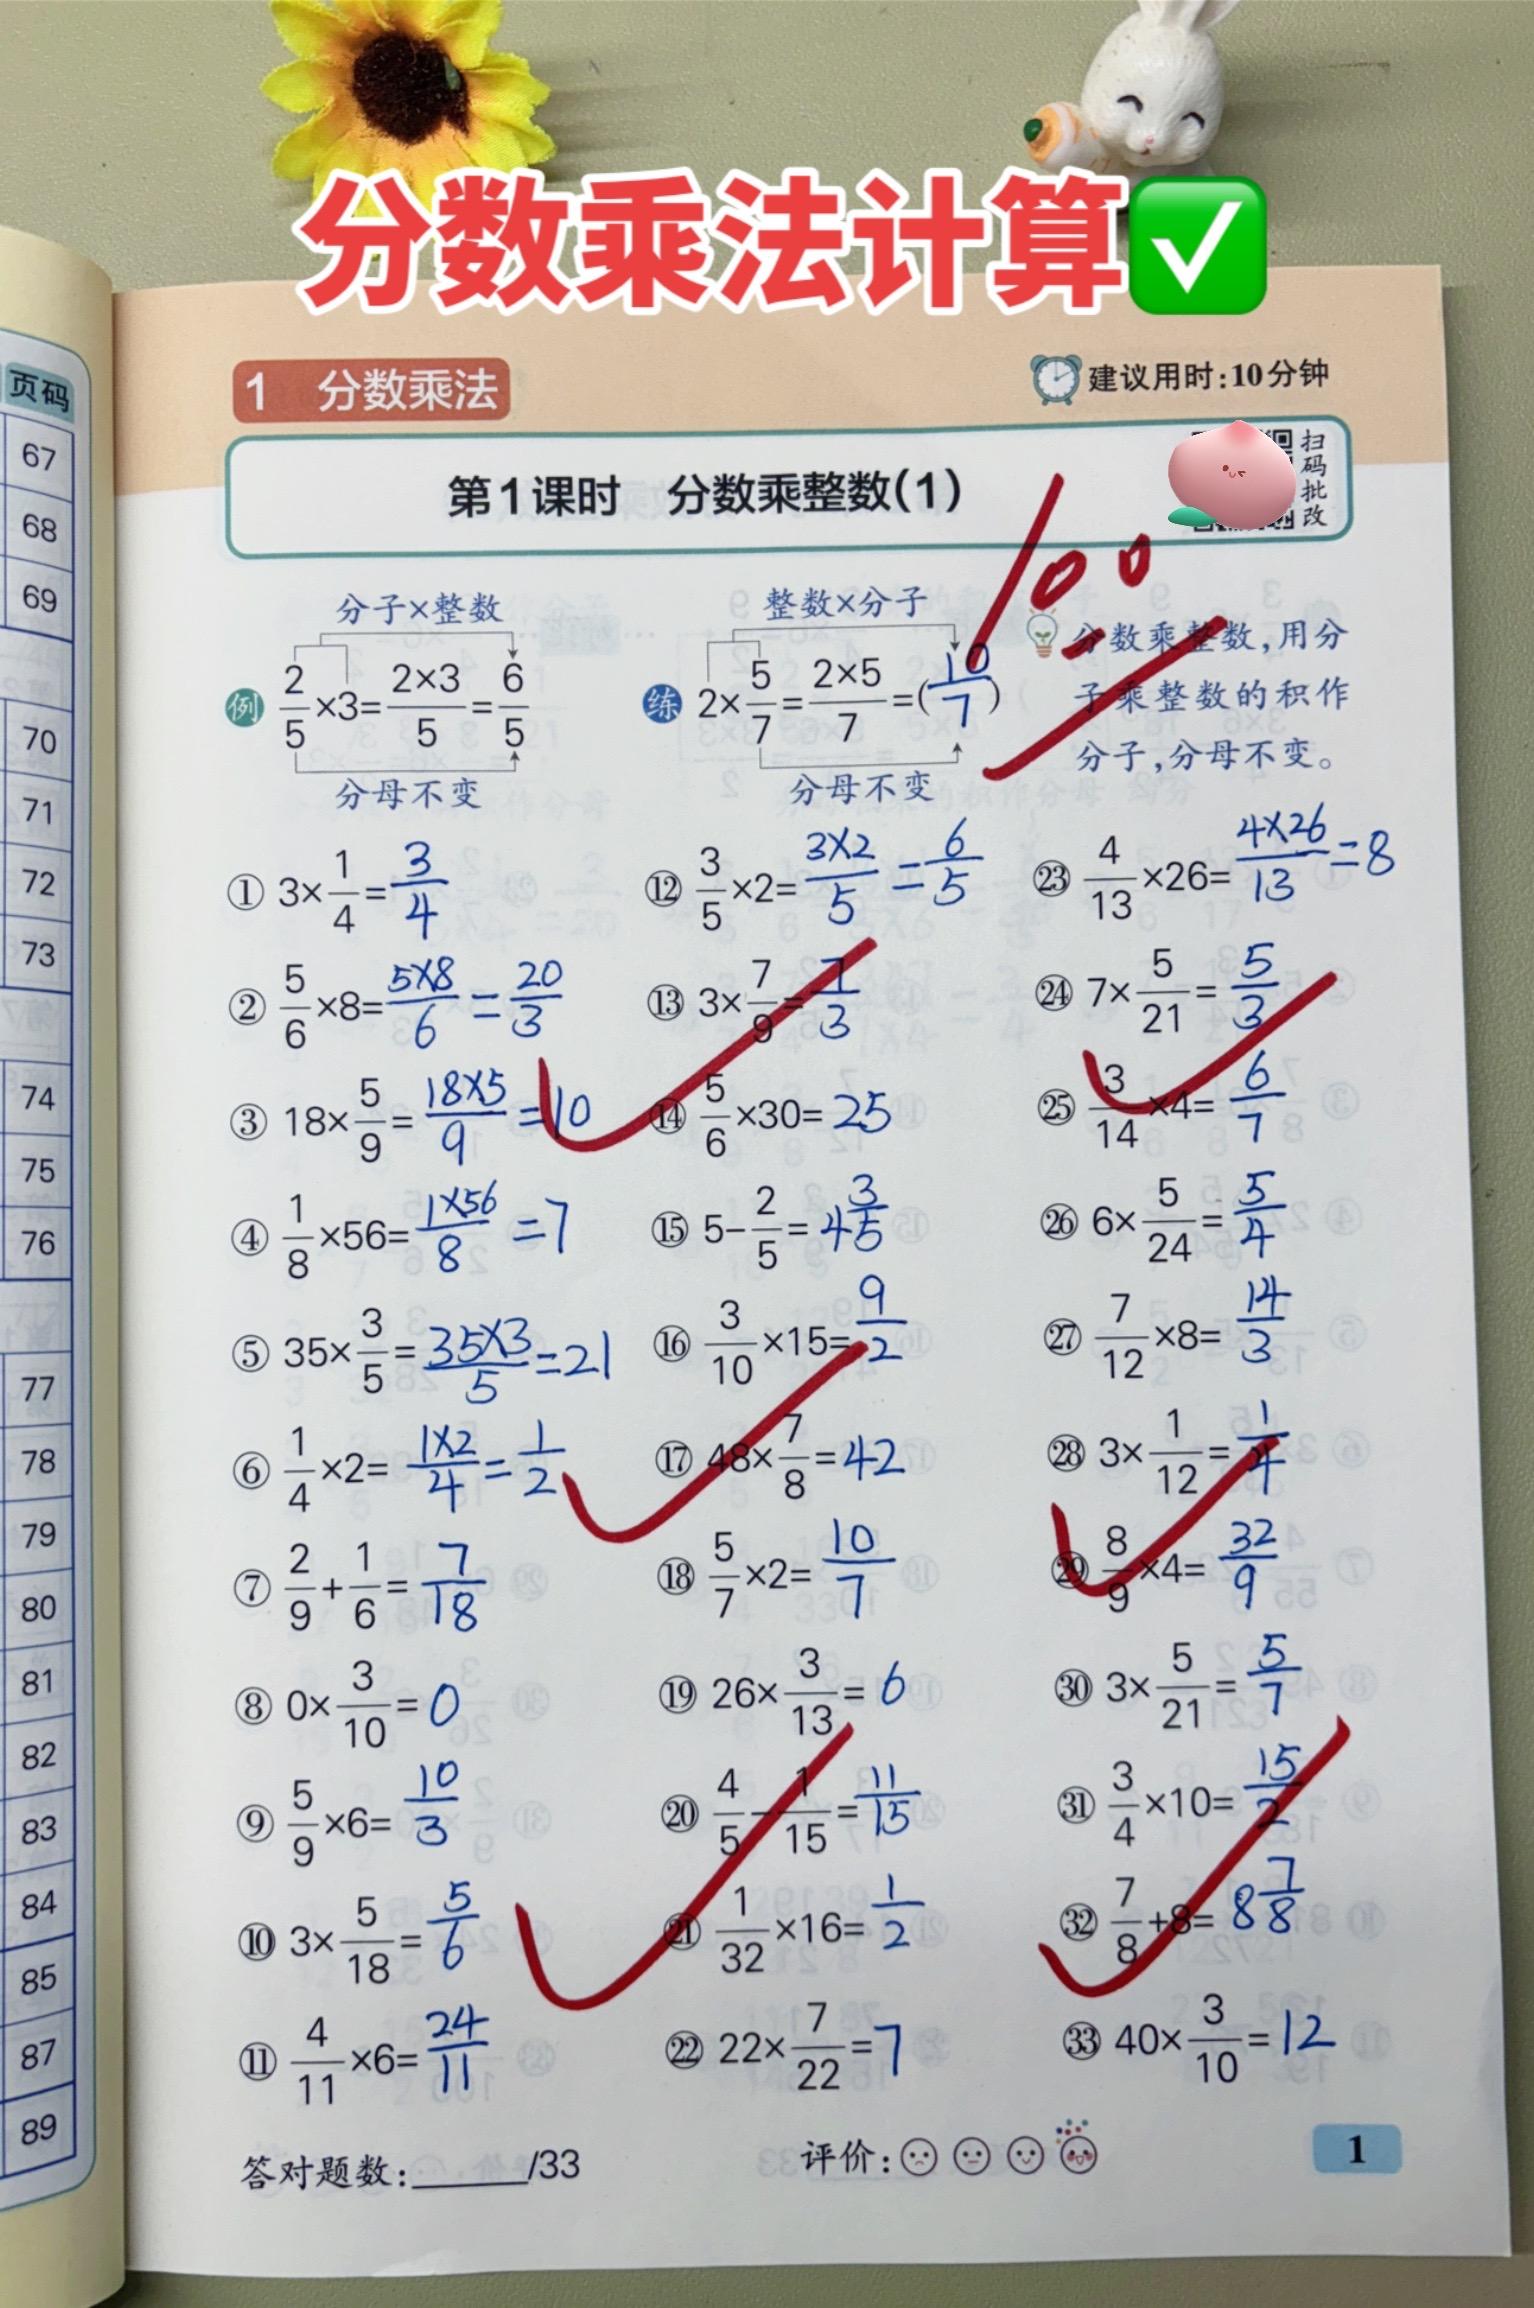 分数乘法计算✅
页码
67
68
69
70
71
72
73
74
75
76
77
78
79
80
81
82
83
84
85
87
89
1 分数乘法
建议用时:10分钟
第1课时 分数乘整数(1)
扫码批改
100
分子×整数
例 2/5×3=2×3/5=6/5
分母不变
整数×分子
练 2×5/7=2×5/7=(10/7)
分母不变
分数乘整数,用分
子乘整数的积作
分子,分母不变。
① 3×1/4=3/4
② 5/6×8=5×8/6=20/3
③ 18×5/9=18×5/9=10
④ 1/8×56=1×56/8=7
⑤ 35×3/5=35×3/5=21
⑥ 1/4×2=1×2/4=1/2
⑦ 2/9+1/6=7/18
⑧ 0×3/10=0
⑨ 5/9×6=10/3
⑩ 3×5/18=5/6
⑪ 4/11×6=24/11
⑫ 3/5×2=3×2/5=6/5
⑬ 3×7/9=7/3
⑭ 5/6×30=25
⑮ 5-2/5=4 3/5
⑯ 3/10×15=9/2
⑰ 48×7/8=42
⑱ 5/7×2=10/7
⑲ 26×3/13=6
⑳ 4/5-1/15=11/15
㉑ 1/32×16=1/2
㉒ 22×7/22=7
㉓ 4/13×26=4×26/13=8
㉔ 7×5/21=5/3
㉕ 3/14×4=6/7
㉖ 6×5/24=5/4
㉗ 7/12×8=14/3
㉘ 3×1/12=1/4
㉙ 8/9×4=32/9
㉚ 3×5/21=5/7
㉛ 3/4×10=15/2
㉜ 7/8+8=8 7/8
㉝ 40×3/10=12
答对题数:______/33
评价:
1